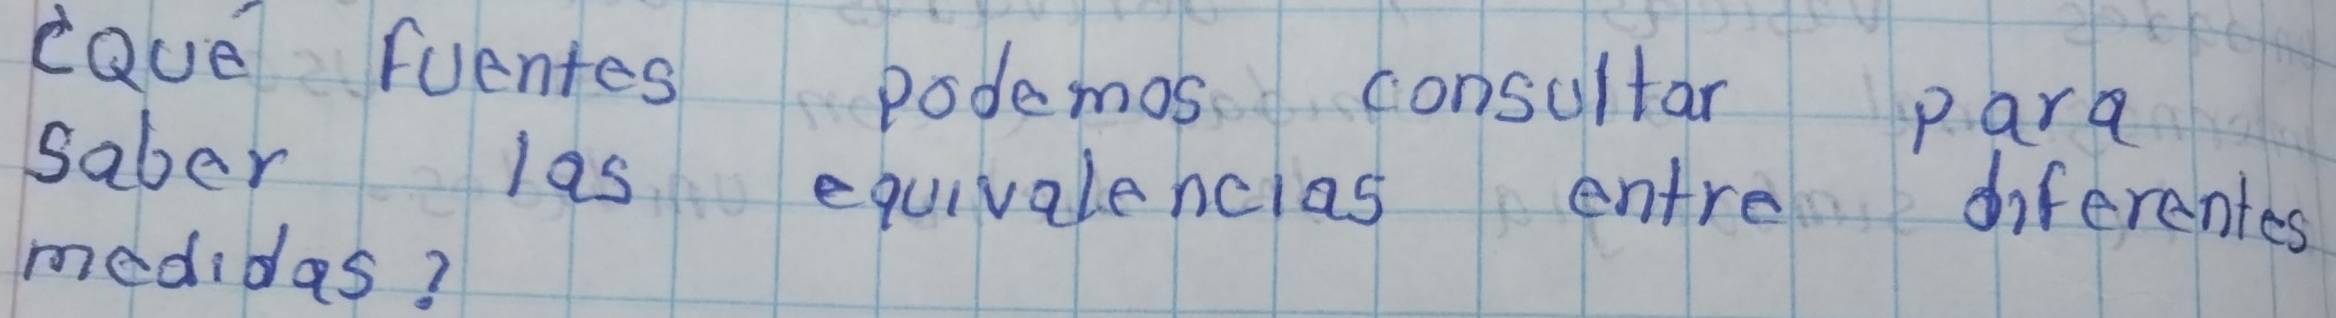 ¿Qué fuentes podemos consultar para
saber las equivalencias entre diferentes
medidas?